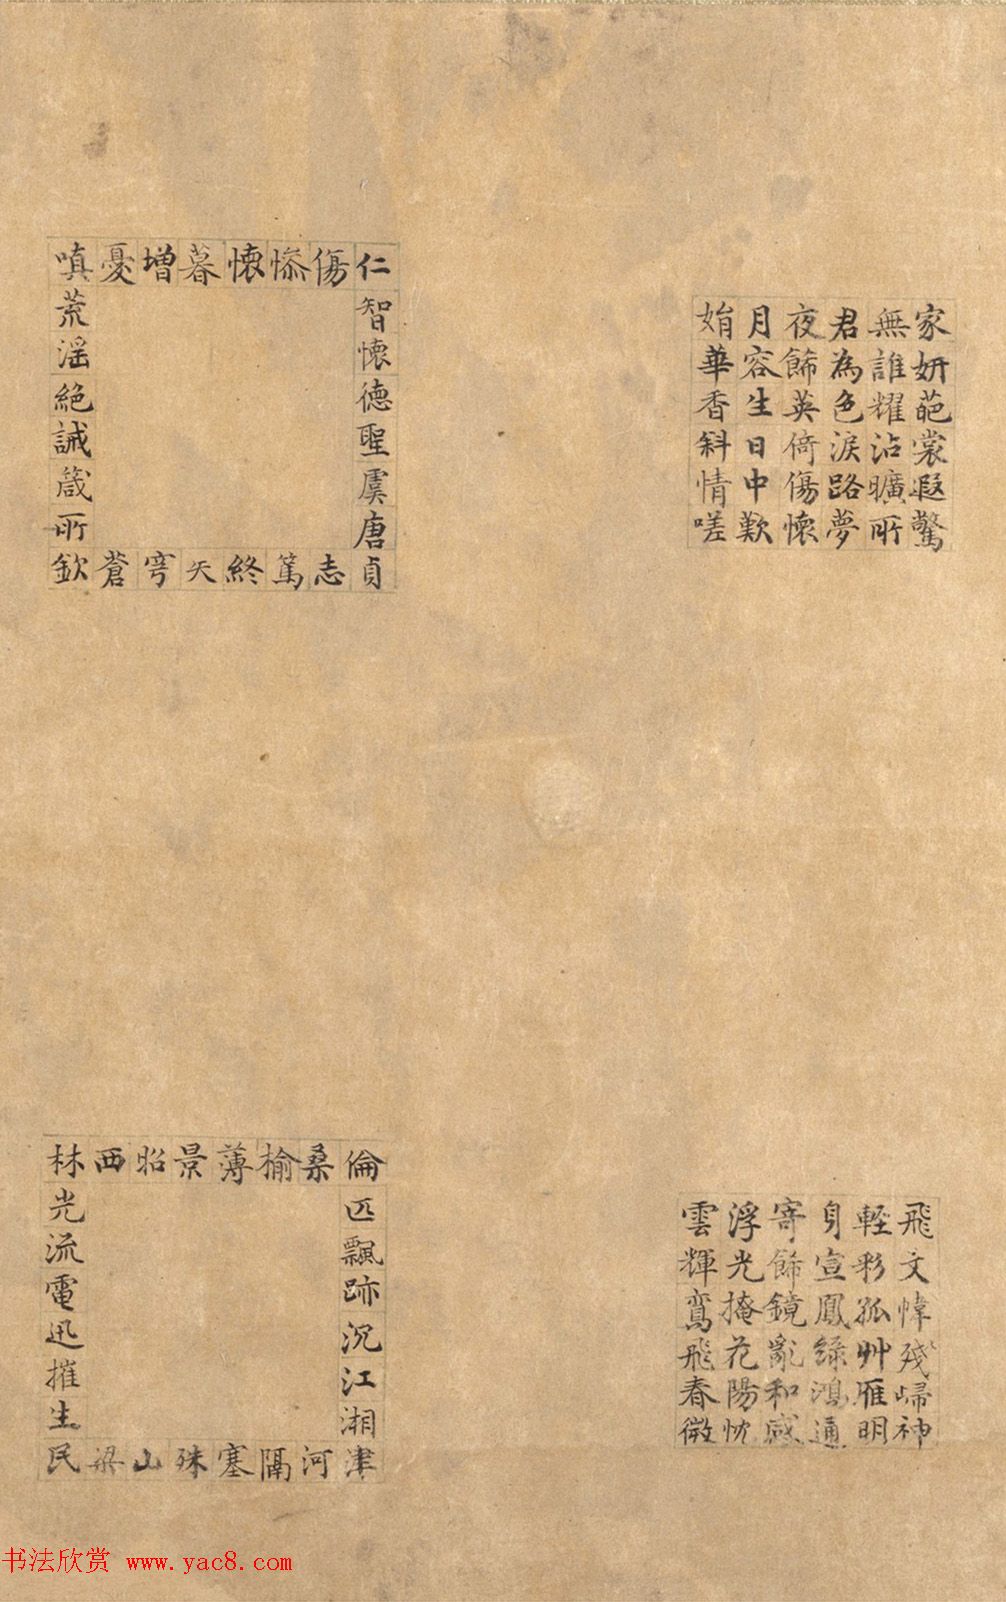 家妍葩裳遐驚
無誰耀沾曠所
君為色淚路夢
夜飾英倚傷懷
月容生日中歎
娟華香斜情嗟
飛文幃殘歸神
輕彩孤艸雁明
身宣鳳綠鴻通
寄飾鏡亂和感
浮光掩花陽忱
雲輝鸞飛春微
仁智懷德聖虞唐貞
志篤終矢穹蒼欽
所箴誡絕淫荒嗔
憂增暮懷慘傷
倫匹飄跡沉江湘津
河隔塞殊山梁民
生摧迅電流光林
西昭景薄榆桑
书法欣赏 www.yac8.com